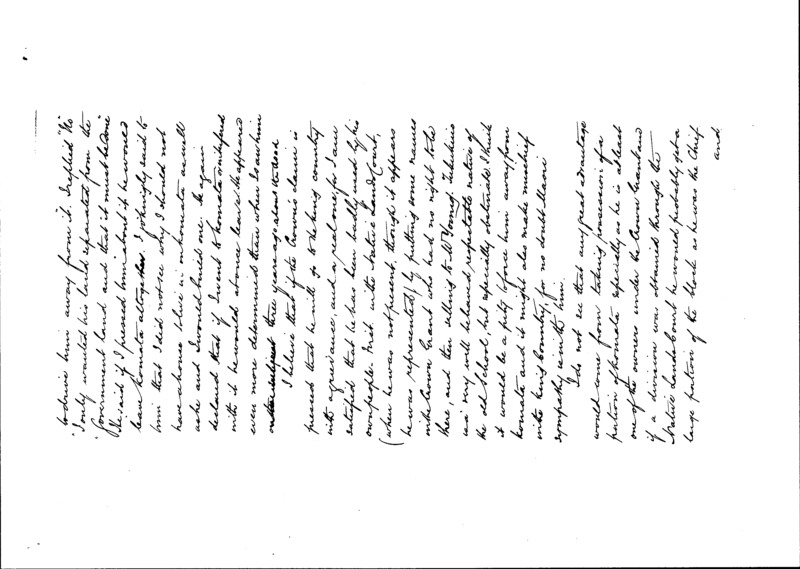 to drive him away from it. I replied "No"
"I only wanted his land separated from the
"Government land and that it must be done"
He said if I pressed him about it he would
leave Komata altogether. I jokingly said to
him that I did not see why I should not
have a house to live in at Komata as well
as he and I would build one. He again
declared that if I went to Komata or interfered
with it he would at once leave. He appeared
even more determined than when I saw him
on the subject three years ago about the door
I believe that if the Crown's claim is
pressed that he will go to the King's country
with a grievance, and a real one, for I am
satisfied that he has been badly used by his
own people. First in the Native Land Court,
(when he was not present, though it appears
he was represented), by putting some names
in the Crown Grant who had no right to be
there, and then selling to Mr. Young. Tukukino
is a very well behaved, respectable native of
the old School, but especially obstinate. I think
it would be a pity to force him away from
Komata and it might also make mischief
in the King Country, for no doubt Rewi
sympathy with him.
I do not see that any great advantage
would arise from taking possession of a
portion of Komata especially as he is at least
one of the owners under the Crown Grant and
if a division was obtained through the
Native Lands Court he would probably get a
large portion of the block as he was the Chief
and